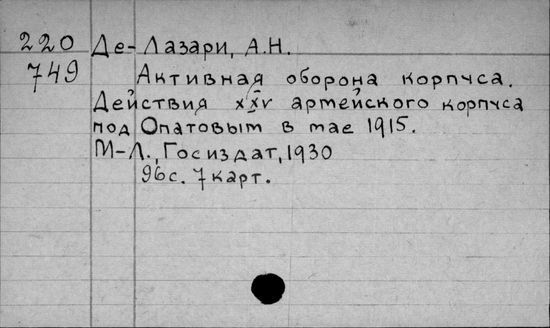 220 Де-Лазари, А.Н.
749 Активная оборона корпуса.
Действия XXV армейского корпуса
под Опатовым в мае 1915.
М-Л., Госиздат, 1930
96с. 7 карт.